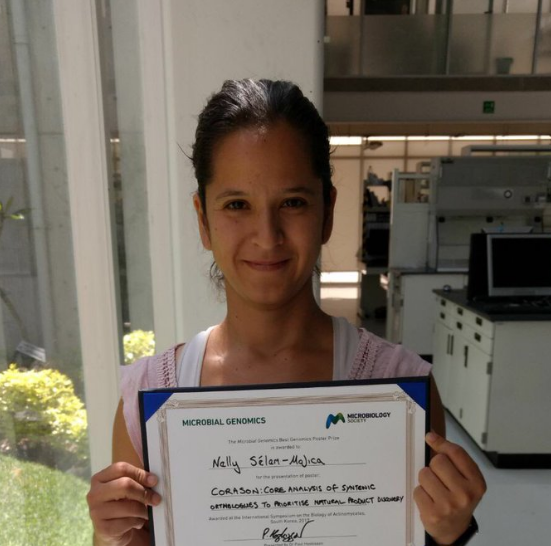 MICROBIAL GENOMICS
MICROBIOLOGY
SOCIETY
The Microbial Genomics Best Genomics Poster Prize
is awarded to
Nelly Sélam-Mojica
for the presentation of poster:
CORASON: CORE ANALYSIS OF SYNTENIC
ORTHOLOGUES TO PRIORITISE NATURAL PRODUCT DISCOVERY
Awarded at the International Symposium on the Biology of Actinomycetes,
South Korea, 2017